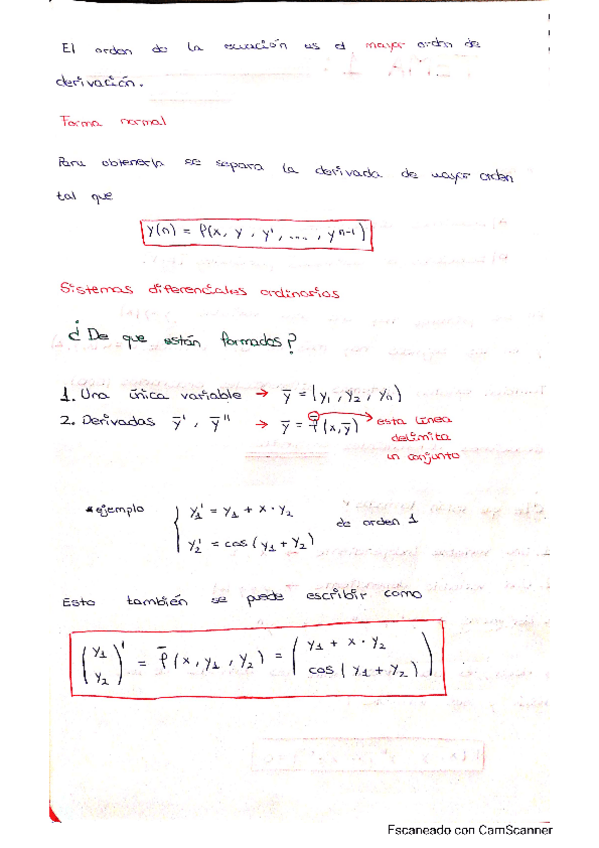 El orden de la ecuación es el mayor orden de
derivación.
Forma normal
Para obtenerla se separa la derivada de mayor orden
tal que
y(n) = f(x, y, y', ..., y^{n-1})
Sistemas diferenciales ordinarios
¿De que están formados?
1. Una única variable → ȳ = (y₁, y₂, yₙ)
2. Derivadas ȳ', ȳ'' → ȳ = f̄(x, ȳ) → esta línea
delimita
un conjunto
*ejemplo { y₁' = y₁ + x · y₂
de orden 1
y₂' = cos(y₁ + y₂)
Esto también se puede escribir como
(y₁ y₂)' = f̄(x, y₁, y₂) = (y₁ + x · y₂
cos(y₁ + y₂))
Escaneado con CamScanner